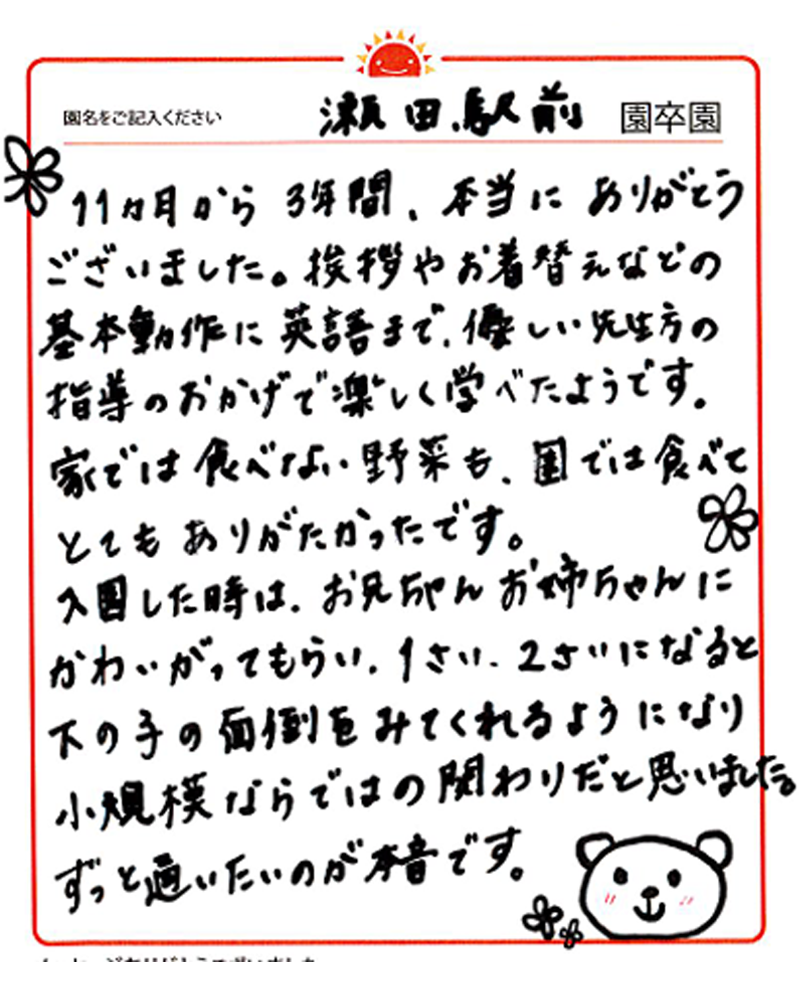 園名をご記入ください 瀬田駅前 園卒園
11ヵ月から3年間、本当にありがとう
ございました。挨拶やお着替えなどの
基本動作に英語まで、優しい先生方の
指導のおかげで楽しく学べたようです。
家では食べない野菜も、園では食べて
とてもありがたかったです。
入園した時は、お兄ちゃんお姉ちゃんに
かわいがってもらい、1さい、2さいになると
下の子の面倒をみてくれるようになり
小規模ならではの関わりだと思いました。
ずっと通いたいのが本音です。